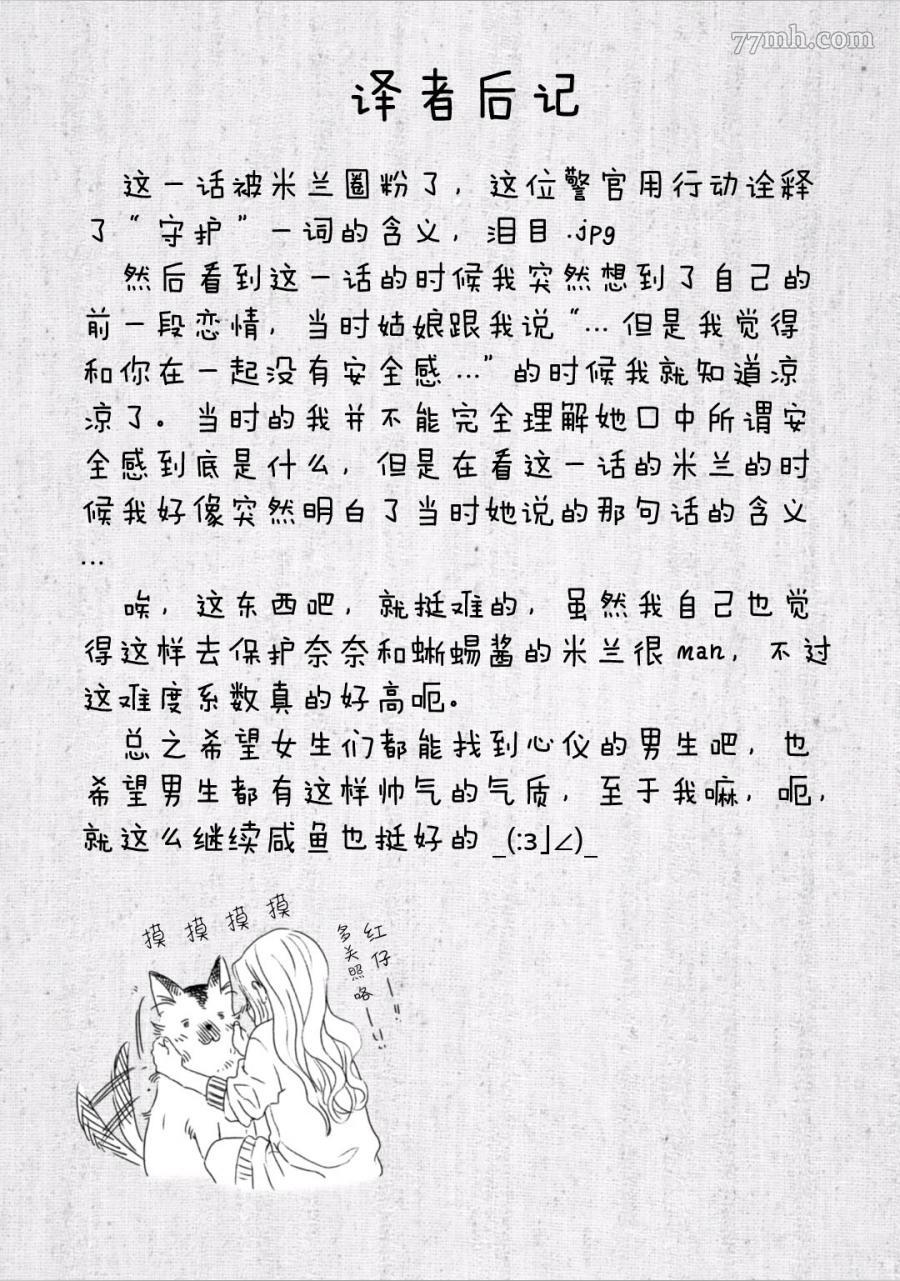 77mh.com
译者后记
这一话被米兰圈粉了，这位警官用行动诠释
了“守护”一词的含义，泪目.jpg
然后看到这一话的时候我突然想到了自己的
前一段恋情，当时姑娘跟我说“…但是我觉得
和你在一起没有安全感…”的时候我就知道凉
凉了。当时的我并不能完全理解她口中所谓安
全感到底是什么，但是在看这一话的米兰的时
候我好像突然明白了当时她说的那句话的含义
…
唉，这东西吧，就挺难的，虽然我自己也觉
得这样去保护奈奈和蜥蜴酱的米兰很man，不过
这难度系数真的好高呃。
总之希望女生们都能找到心仪的男生吧，也
希望男生都有这样帅气的气质，至于我嘛，呃，
就这么继续咸鱼也挺好的 _(:з」∠)_
摸摸摸摸
红仔——!!
多关照咯——!!